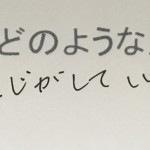 どのような
じがしてい